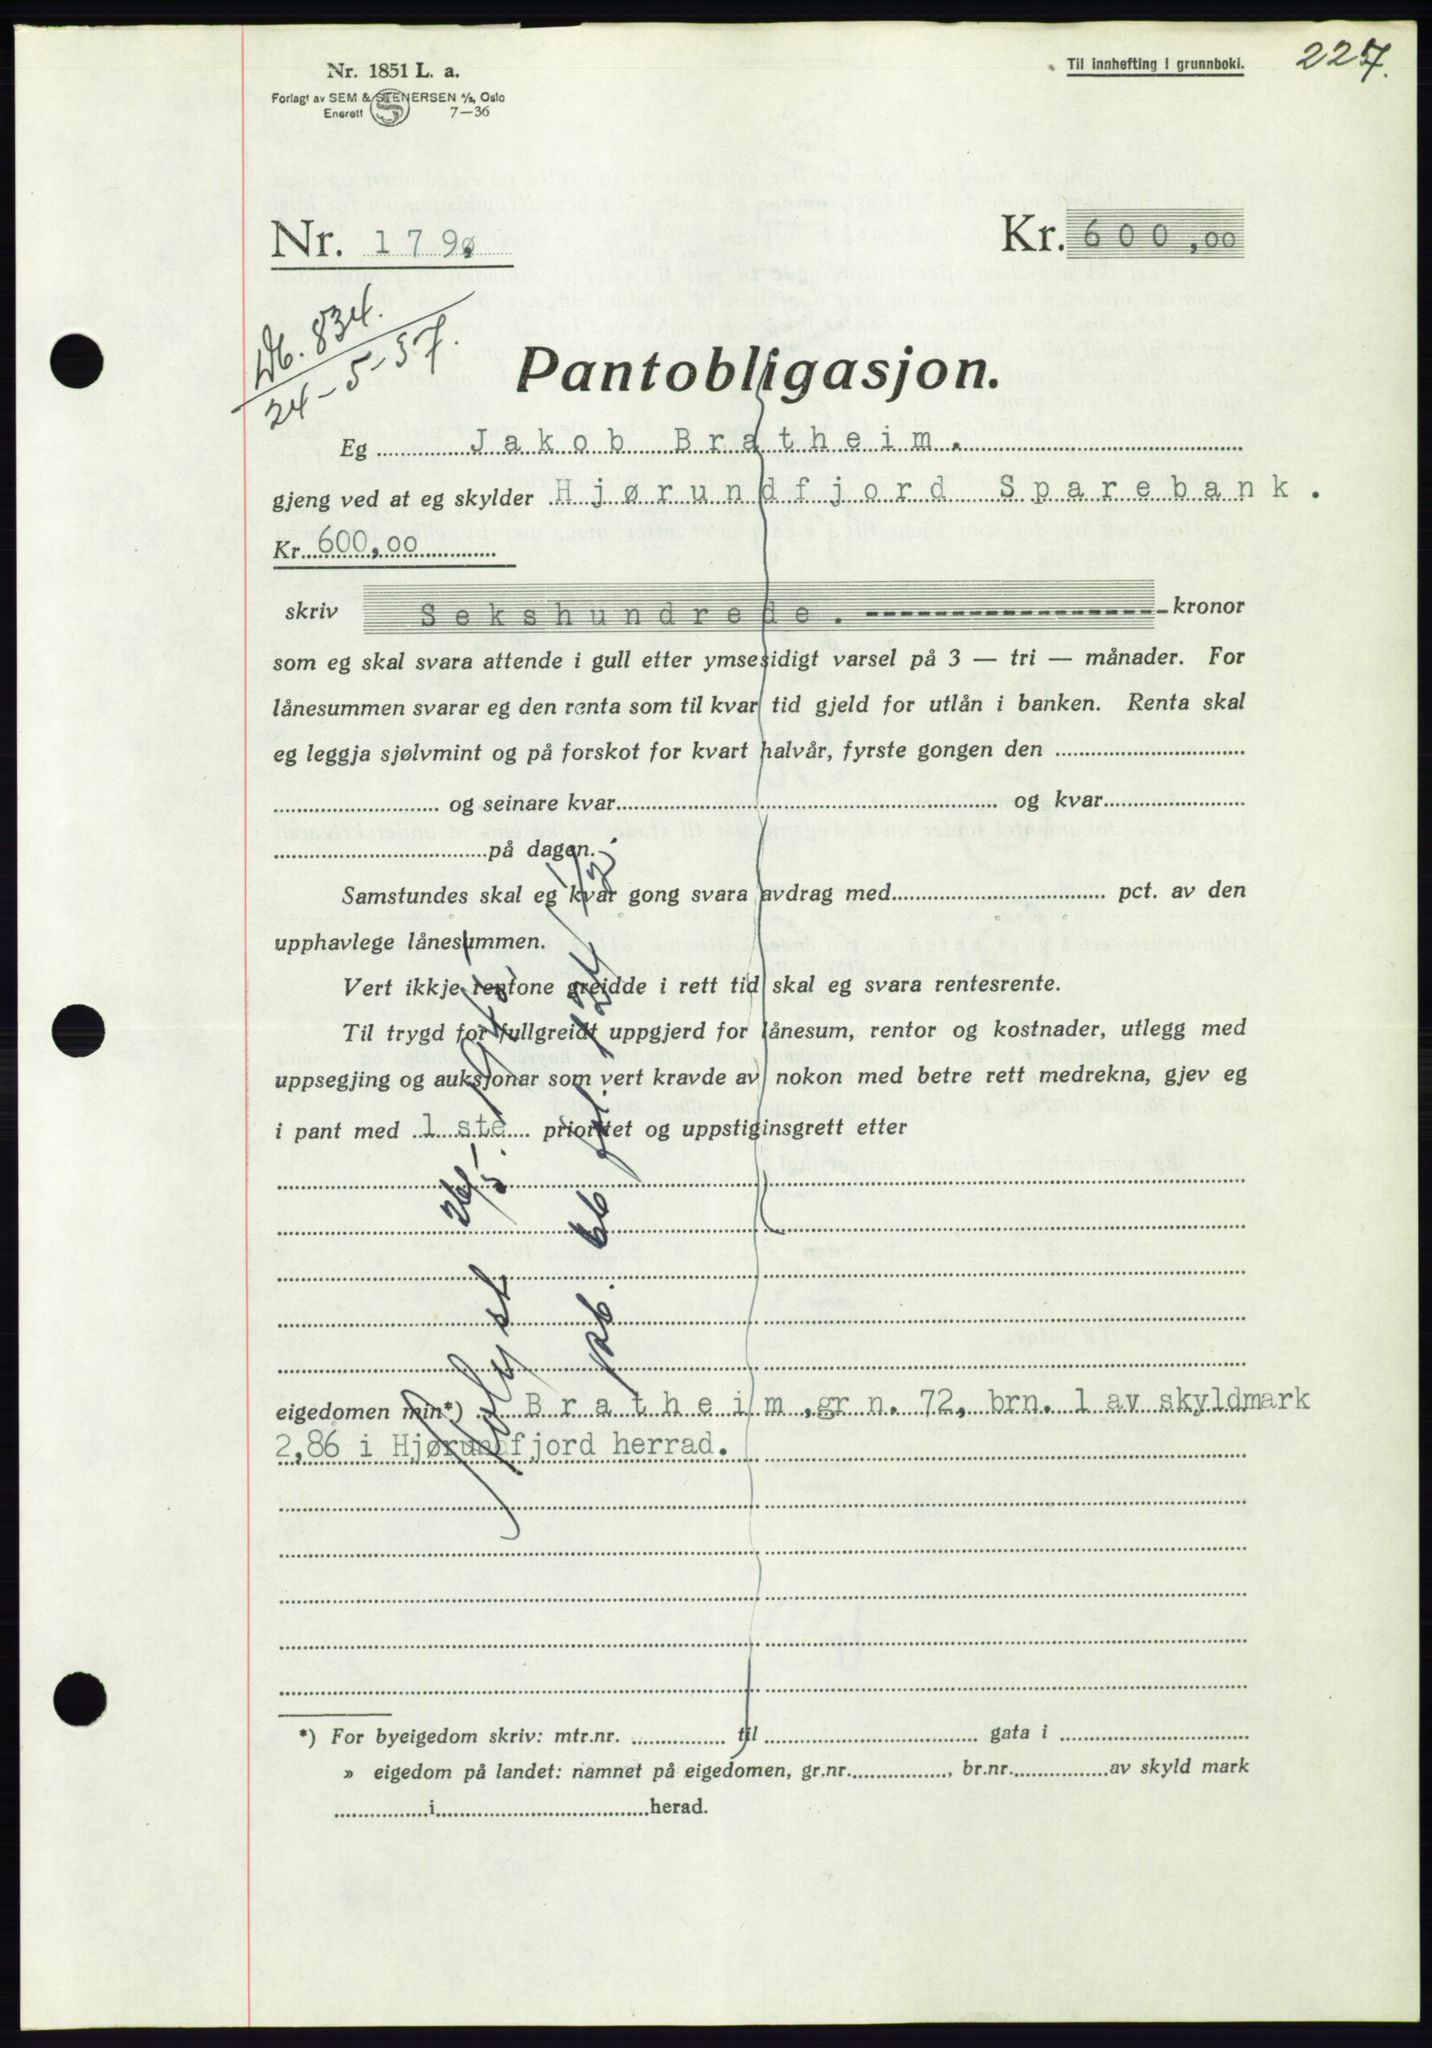 227.
Nr. 1851 L. a.
Til innhefting i grunnboki.
Forlagt av SEM & STENERSEN A/s, Oslo
Enerett 7—36
Nr. 179. Kr. 600,00
Db. 834.
24-5-37.
Pantobligasjon.
Eg Jakob Bratheim.
gjeng ved at eg skylder Hjørundfjord Sparebank.
Kr. 600,00
skriv Sekshundrede. kronor
som eg skal svara attende i gull etter ymsesidigt varsel på 3 — tri — månader. For
lånesummen svarar eg den renta som til kvar tid gjeld for utlån i banken. Renta skal
eg leggja sjølvmint og på forskot for kvart halvår, fyrste gongen den
og seinare kvar og kvar
på dagen.
Samstundes skal eg kvar gong svara avdrag med pct. av den
upphavlege lånesummen.
Vert ikkje rentone greidde i rett tid skal eg svara rentesrente.
Til trygd for fullgreidt uppgjerd for lånesum, rentor og kostnader, utlegg med
uppsegjing og auksjonar som vert kravde av nokon med betre rett medrekna, gjev eg
i pant med 1 ste prioritet og uppstiginsgrett etter
eigedomen min*) Bratheim, gr n. 72, brn. 1 av skyldmark
2,86 i Hjørundfjord herrad.
Avlyst 26/5.
pb. 66 fol.
*) For byeigedom skriv: mtr.nr. til gata i
» eigedom på landet: namnet på eigedomen, gr.nr. , br.nr. av skyld mark
i herad.